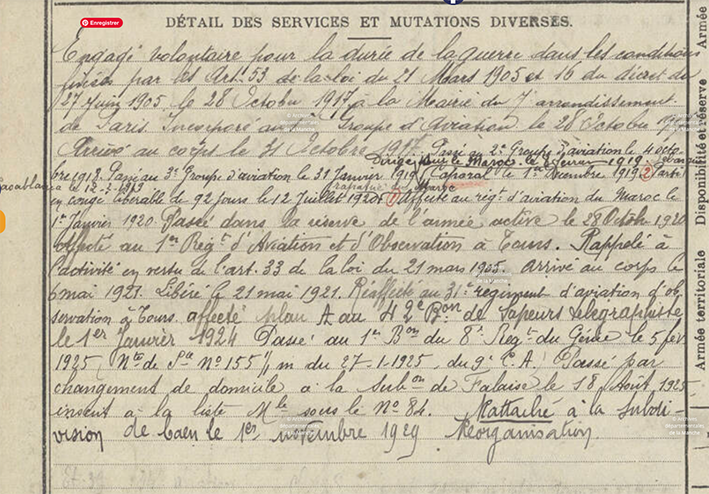 Enregistrer
DÉTAIL DES SERVICES ET MUTATIONS DIVERSES.
Engagé volontaire pour la durée de la guerre dans les conditions
par les Art. 53 de la loi du 21 Mars 1905 et 16 du décret du
27 Juin 1905 le 28 Octobre 1917 à la Mairie du 7e arrondissement
de Paris. Incorporé au 1er Groupe d'Aviation le 28 Octobre 1917
Arrivé au corps le 31 Octobre 1917. Passé au 2e Groupe d'aviation le 4 octo-
Dirigé sur le Maroc le 8 février 1919.
bre 1918. Passé au 3e Groupe d'aviation le 31 Janvier 1919 Caporal le 1er Décembre 1919 2 Parti
Casablanca le 12-2-1919
rapatrié du Maroc
en congé libérable de 92 jours le 12 Juillet 1920. 1 Affecté au régt d'aviation du Maroc le
1er Janvier 1920. Passé dans la réserve de l'armée active le 28 Octobre 1920
affecté au 1er Régt d'Aviation et d'Observation à Tours. Rappelé à
l'activité en vertu de l'art. 33 de la loi du 21 mars 1905. arrivé au corps le
6 mai 1921. Libéré le 21 mai 1921. Réaffecté au 31e régiment d'aviation d'ob-
servation à Tours. affecté plan A au 42e Bon de Sapeurs télégraphistes
le 1er Janvier 1924 Passé au 1er Bon du 8e Régt du Génie le 5 fév
1925 (Nte de Sce No 155 1/m du 27-1-1925, du 9e C.A.) Passé par
changement de domicile à la Subon de Falaise le 18 Août 1925
inscrit à la liste Mle sous le No 84. Rattaché à la subdi
vision de Caen le 1er novembre 1929 Réorganisation.
Armée
Disponibilité et réserve
Armée territoriale